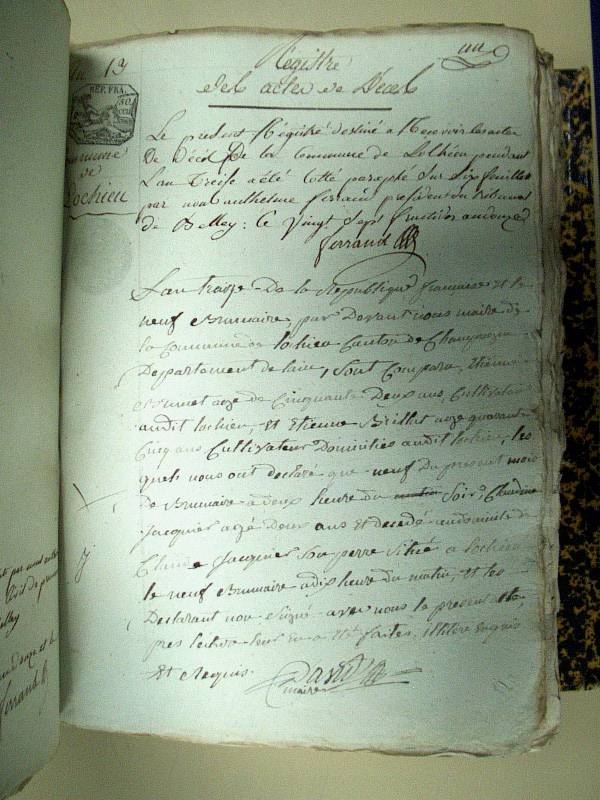 an 13
Régistre
des actes de Décès
un
REP. FRA.
50
commune
de
Lochieu
Le présent Régistre destiné a Recevoir les actes
de Décès De la commune de Lochieu pendant
Lan Treize a été cotté paraphé sur six feuilles
par nous anthelme ferrand président du tribunal
de Belley : Ce vingt sept fructidor an douze
ferrand
Lan traize De la République française et le
neuf Brumaire, par Devant nous maire de
la Commune de lochieu Canton de Champagne
Departement de lain, sont Comparu, Etienne
Brunet age de Cinquante Deux ans, Cultivateur
audit lochieu, et Etienne Brillat age quarante
Cinq ans Cultivateur Domiciliés audit lochieu, les
quels nous ont declaré que neuf Du present mois
de Brumaire a deux heure du soir, Claudine
Jacquier age Deux ans et decedé audomicile de
Claude Jacquier son perre sitüé a lochieu
le neuf Brumaire a dix heure du matin, et les
Declarant non signé avec nous le present acte
pres lecture leur en a ett faites, illitere enquis
et Requis.
David
maire